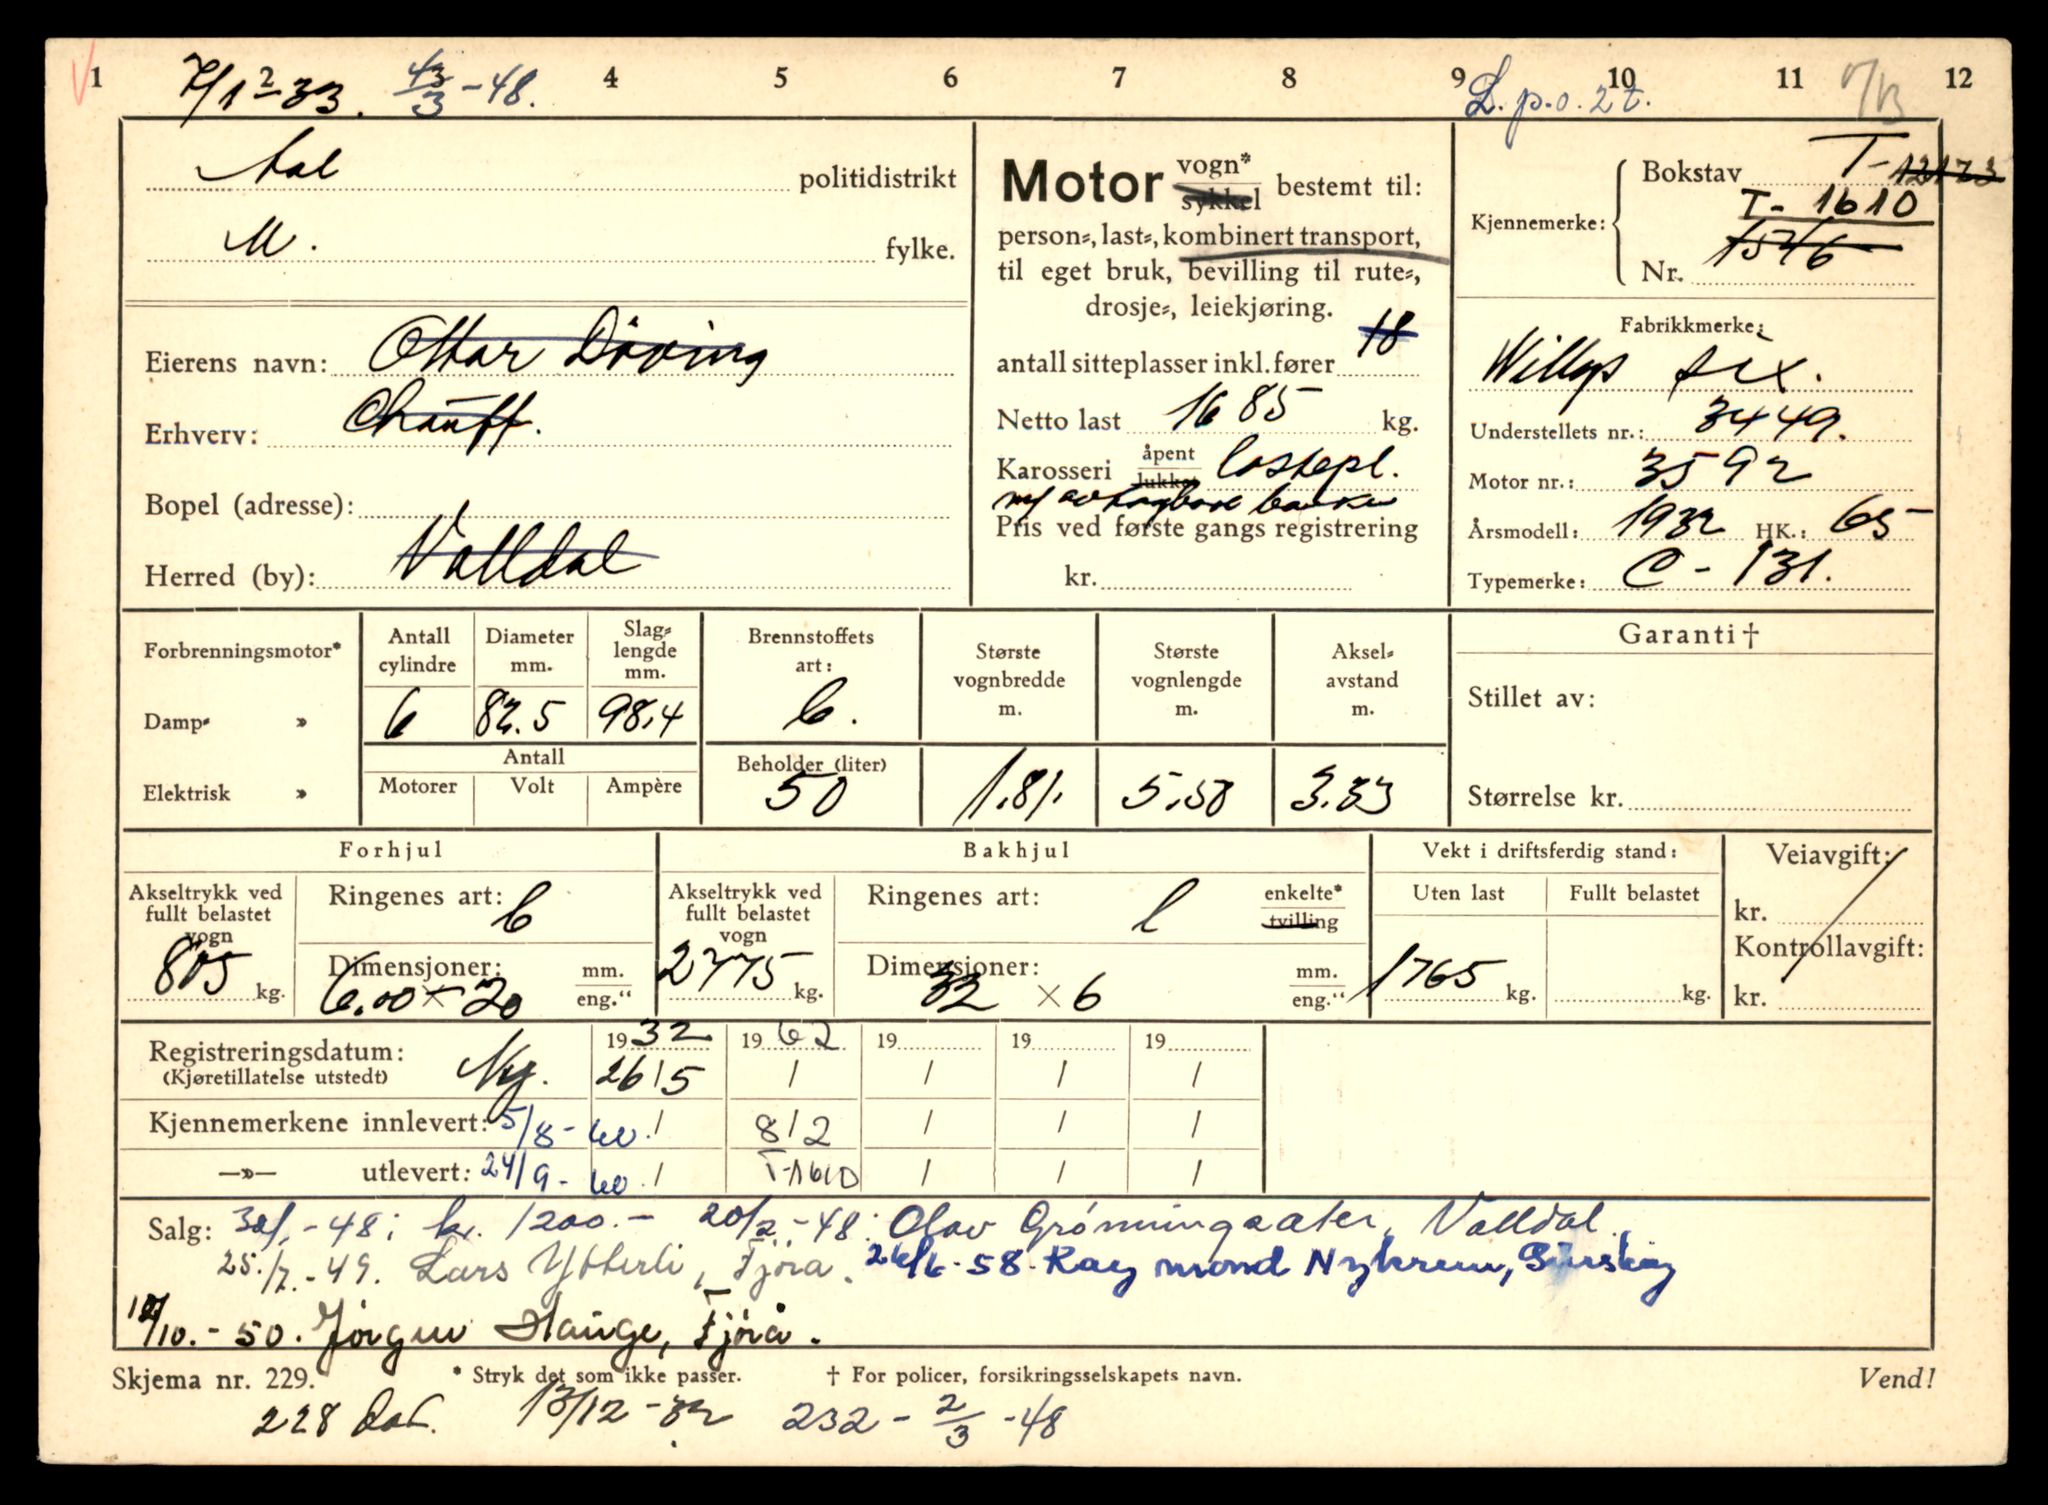 1 2 4 5 6 7 8 9 10 11 12
7/1-33. -48. L. p.o. 2 t.
Aal politidistrikt
M. fylke.
Eierens navn: Ottar Döving
Erhverv: Chauff.
Bopel (adresse):
Herred (by): Valldal
Motor vogn* sykkel bestemt til:
person=, last=, kombinert transport,
til eget bruk, bevilling til rute=,
drosje=, leiekjøring.
antall sitteplasser inkl. fører 18
Netto last 1685 kg.
Karosseri åpent lukket lastepl.
m/ avtagbare benker
Pris ved første gangs registrering
kr.
Kjennemerke:
Bokstav T-12173
T-1610
Nr. 1546
Fabrikkmerke:
Willys six.
Understellets nr.: 3449.
Motor nr.: 3592
Årsmodell: 1932 HK.: 65
Typemerke: C-131.
Forbrenningsmotor* Antall cylindre Diameter mm. Slag=lengde mm. Brennstoffets art: Største vognbredde m. Største vognlengde m. Aksel=avstand m.
Damp= » 6 82.5 98,4 b.
Antall
Elektrisk » Motorer Volt Ampère Beholder (liter) 50 1.81. 5.58 3.33
Garanti †
Stillet av:
Størrelse kr.
Forhjul
Akseltrykk ved fullt belastet vogn 805 kg.
Ringenes art: b
Dimensjoner: 6.00 × 20 mm. eng."
Bakhjul
Akseltrykk ved fullt belastet vogn 2775 kg.
Ringenes art: l enkelte* tvilling
Dimensjoner: 32 × 6 mm. eng."
Vekt i driftsferdig stand:
Uten last 1765 kg.
Fullt belastet kg.
Veiavgift:
kr.
Kontrollavgift:
kr.
Registreringsdatum: Ny. 1932 1962 19 19 19
(Kjøretillatelse utstedt) 26/5 / / / /
Kjennemerkene innlevert: 5/8-60. / 8/2 / / /
—»— utlevert: 24/9-60. / T-1610 / / /
Salg: -48; kr. 1200.- 20/2-48: Olav Grönningsæter, Valldal.
25./7.-49. Lars Ytterli, Fjöra. -58. Raymond Nykrem,
/10.-50. Jörgen Hauge, Fjörå.
Skjema nr. 229. * Stryk det som ikke passer. † For policer, forsikringsselskapets navn. Vend!
228 dat. 13/12-32 232 - 2/3-48